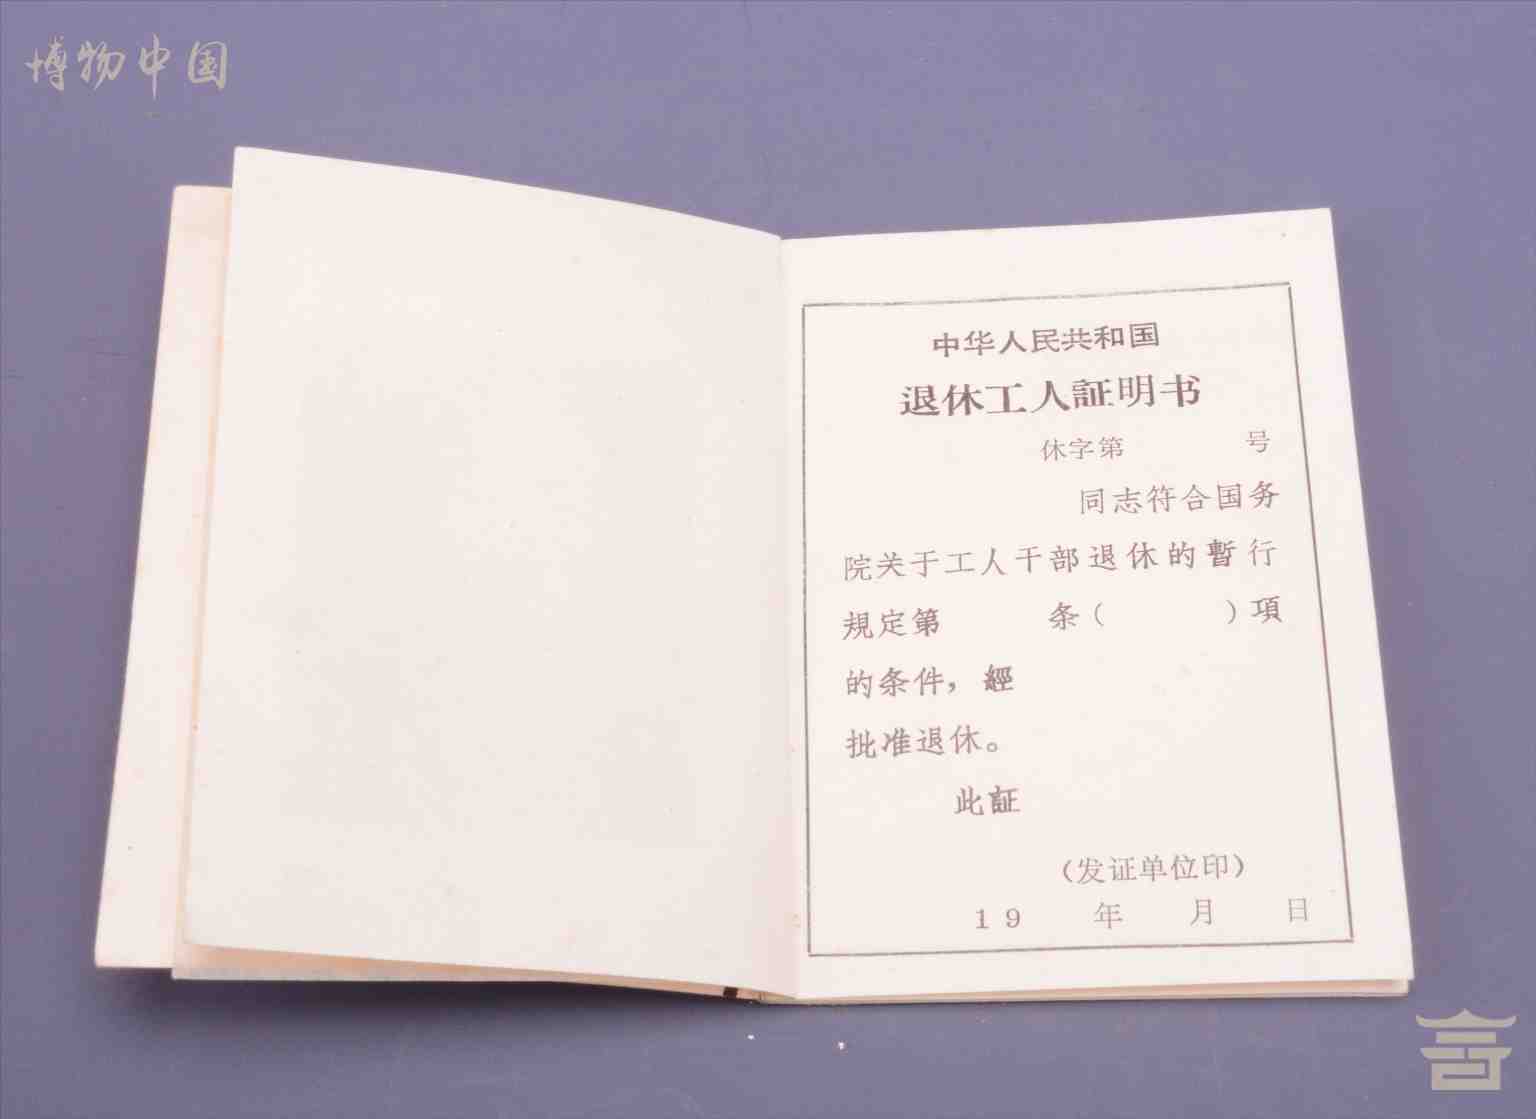 博物中国
中华人民共和国
退休工人証明书
休字第 号
同志符合国务
院关于工人干部退休的暫行
規定第 条( )項
的条件，經
批准退休。
此証
(发证单位印)
19 年 月 日